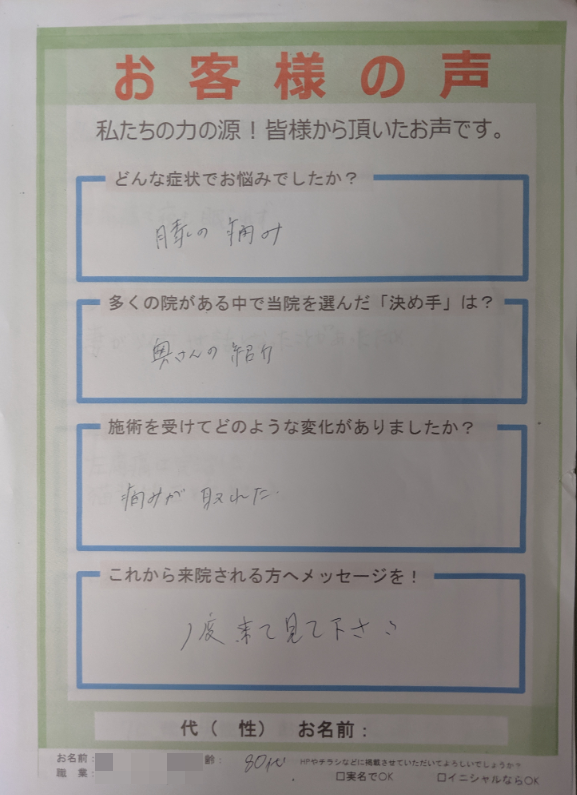 お客様の声
私たちの力の源！皆様から頂いたお声です。
どんな症状でお悩みでしたか？
膝の痛み
多くの院がある中で当院を選んだ「決め手」は？
奥さんの紹介
施術を受けてどのような変化がありましたか？
痛みが取れた
これから来院される方へメッセージを！
1度来て見て下さい
代（　性）　お名前：
お名前： 齢： 80代 HPやチラシなどに掲載させていただいてよろしいでしょうか？
職　業： □実名でOK □イニシャルならOK